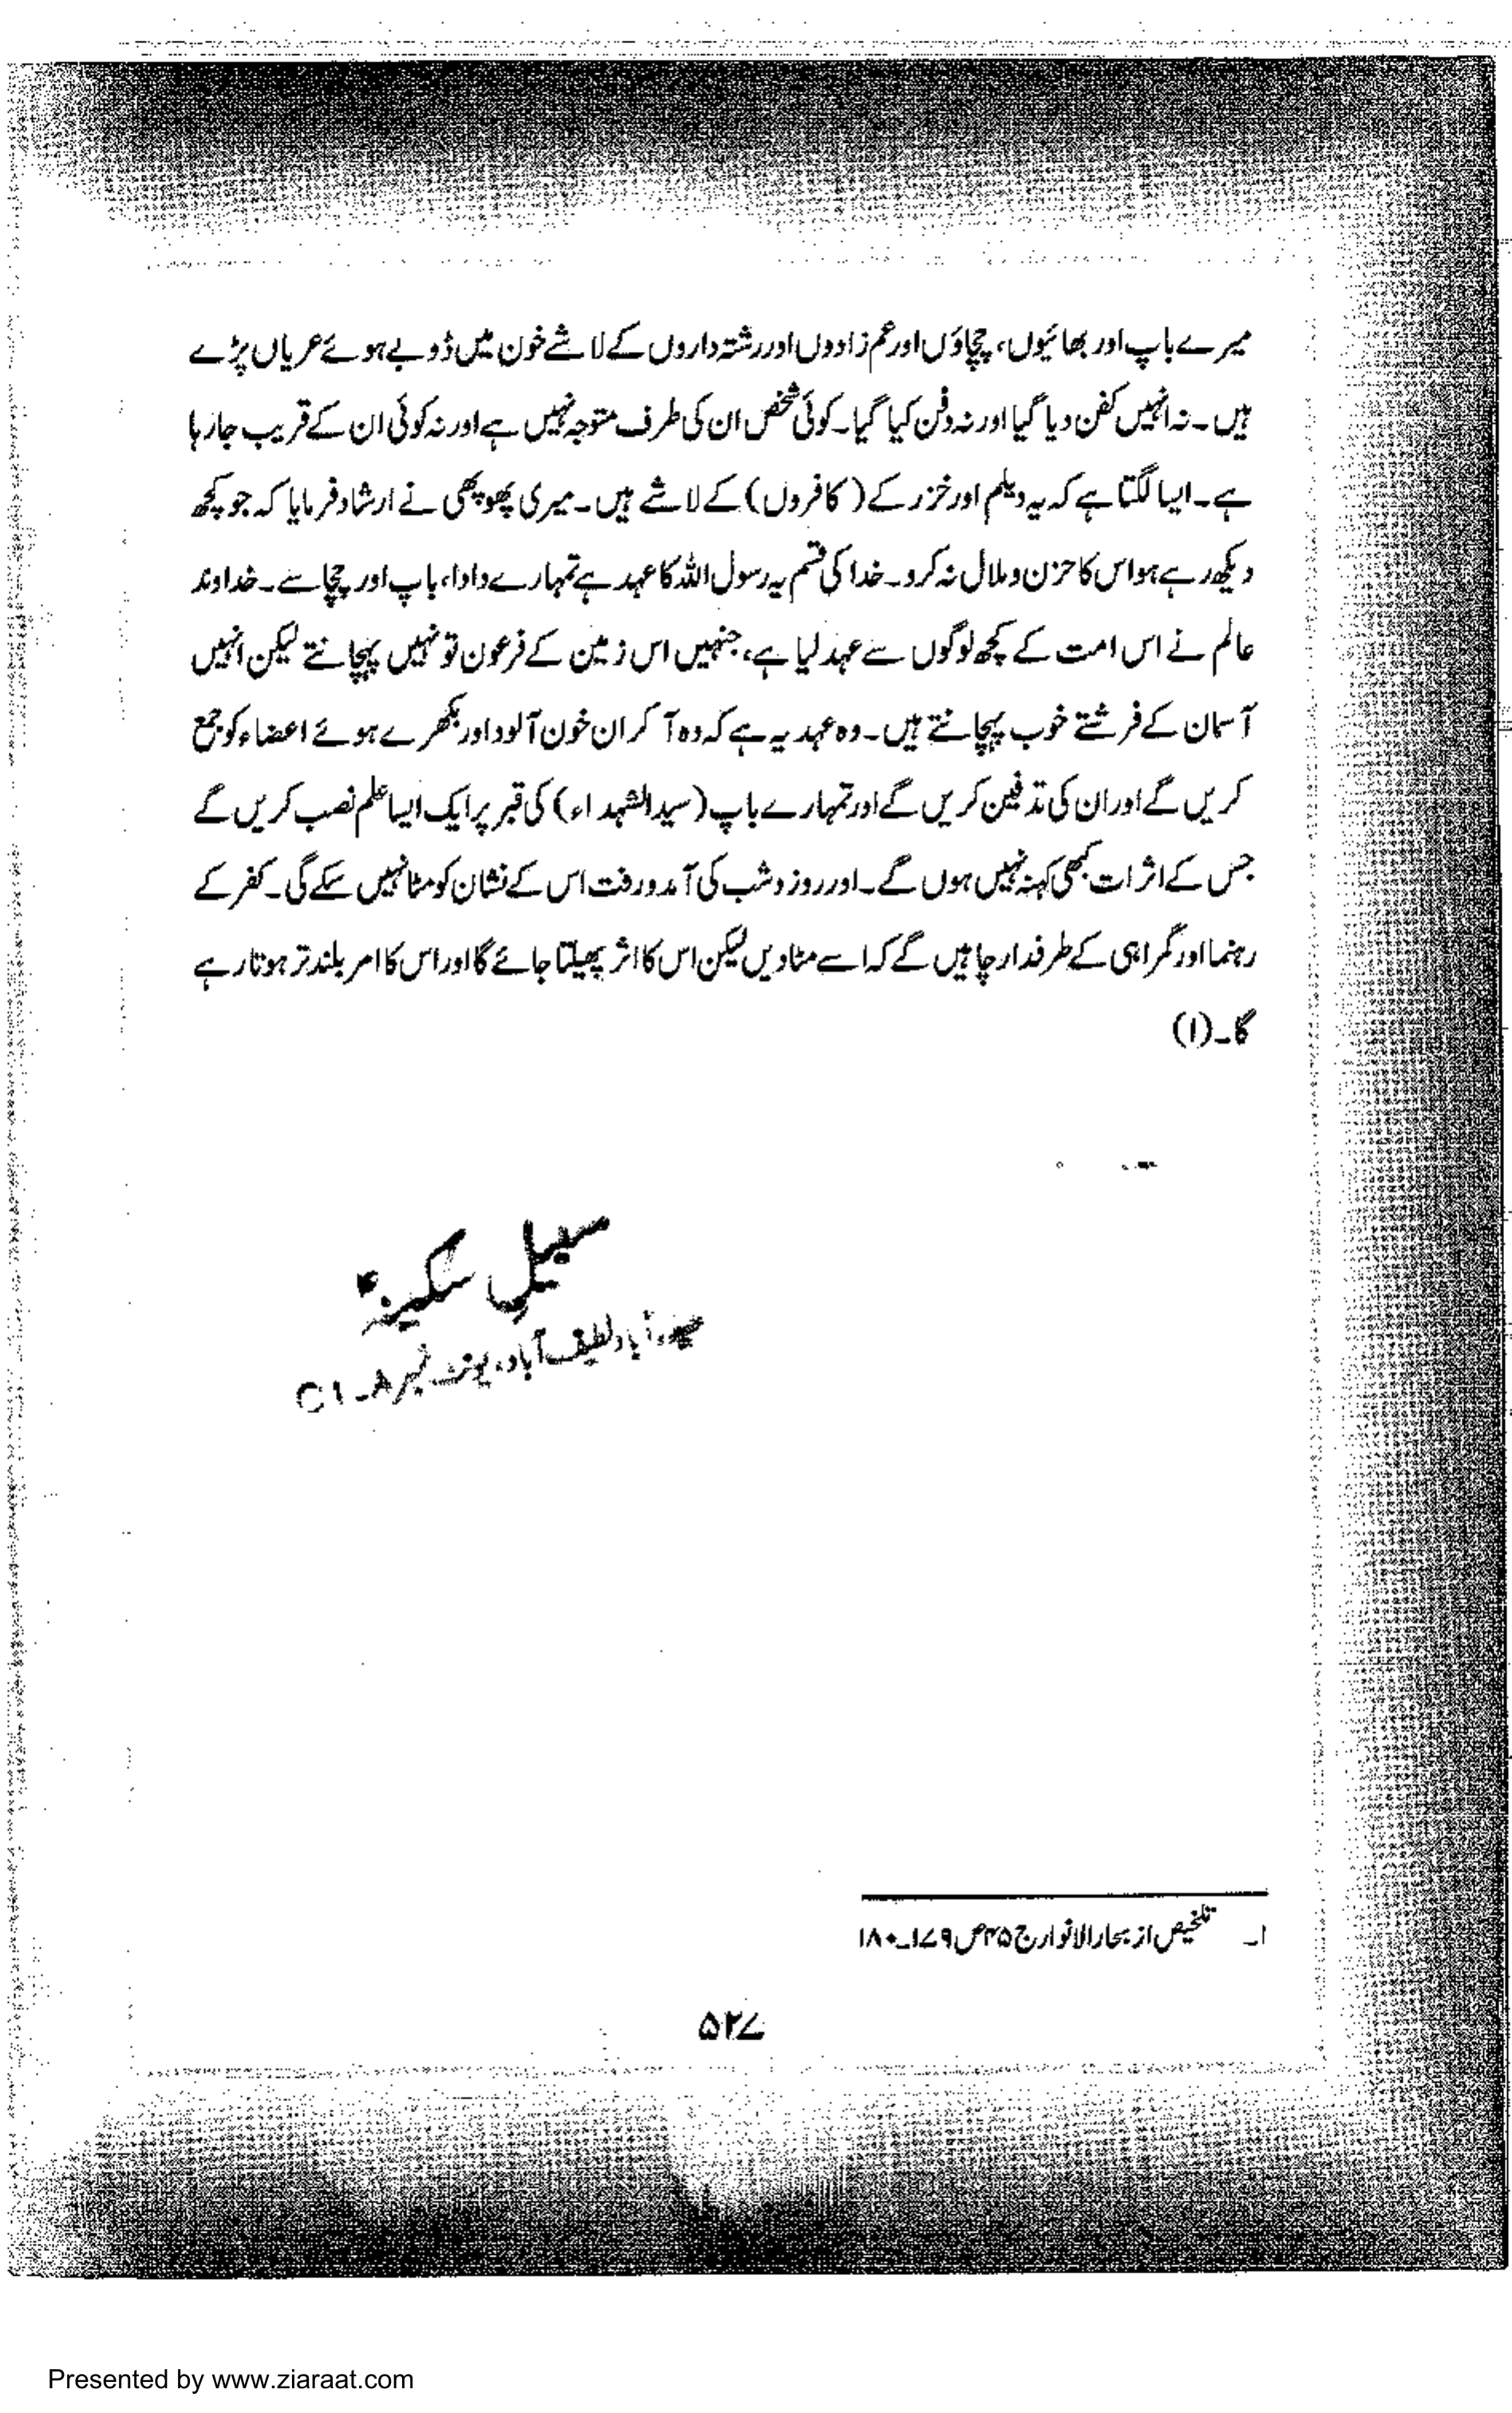 میرے باپ اور بھائیوں، چچاؤں اور عم زادوں اور رشتہ داروں کے لاشے خون میں ڈوبے ہوئے عریاں پڑے
ہیں۔ نہ انہیں کفن دیا گیا اور نہ دفن کیا گیا۔ کوئی شخص ان کی طرف متوجہ نہیں ہے اور نہ کوئی ان کے قریب جا رہا
ہے۔ ایسا لگتا ہے کہ یہ دیلم اور خزر کے (کافروں) کے لاشے ہیں۔ میری پھوپھی نے ارشاد فرمایا کہ جو کچھ
دیکھ رہے ہو اس کا حزن و ملال نہ کرو۔ خدا کی قسم یہ رسول اللہ کا عہد ہے تمہارے دادا، باپ اور چچا سے۔ خداوند
عالم نے اس امت کے کچھ لوگوں سے عہد لیا ہے، جنہیں اس زمین کے فرعون تو نہیں پہچانتے لیکن انہیں
آسمان کے فرشتے خوب پہچانتے ہیں۔ وہ عہد یہ ہے کہ وہ آ کر ان خون آلود اور بکھرے ہوئے اعضاء کو جمع
کریں گے اور ان کی تدفین کریں گے اور تمہارے باپ (سید الشہداء) کی قبر پر ایک ایسا علم نصب کریں گے
جس کے اثرات کبھی کہنہ نہیں ہوں گے۔ اور روز و شب کی آمد و رفت اس کے نشان کو مٹا نہیں سکے گی۔ کفر کے
رہنما اور گمراہی کے طرفدار چاہیں گے کہ اسے مٹا دیں لیکن اس کا اثر پھیلتا جائے گا اور اس کا امر بلند تر ہوتا رہے
گا۔ (۱)
سبیلِ سکینہؑ
حیدرآباد لطیف آباد، یونٹ نمبر ۸۔ C۱
۱۔ تلخیص از بحار الانوار ج ۴۵ ص ۱۷۹۔۱۸۰
۵۲۷
Presented by www.ziaraat.com